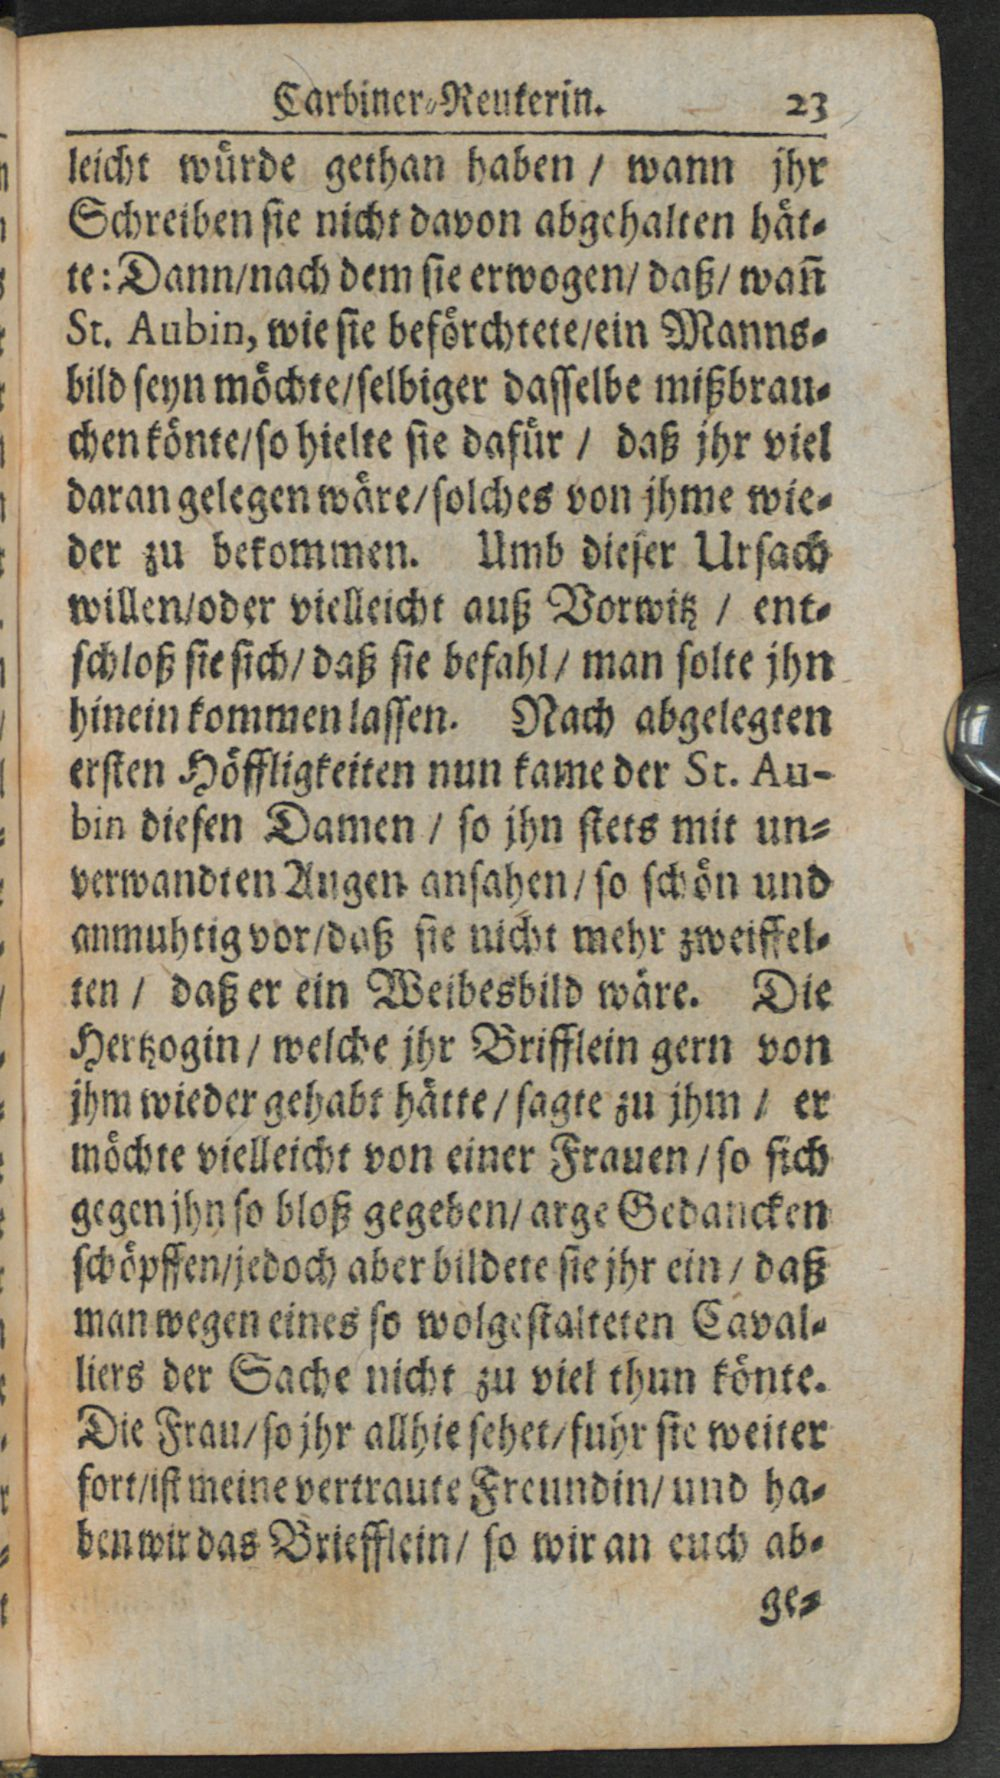 Carbiner-Reuterin. 23
leicht wuͤrde gethan haben / wann jhr
Schreiben sie nicht davon abgehalten haͤt-
te: Dann/nach dem sie erwogen/ daß/ wañ
St. Aubin, wie sie befoͤrchtete/ein Manns-
bild seyn moͤchte/selbiger dasselbe mißbrau-
chen koͤnte/so hielte sie dafuͤr / daß jhr viel
daran gelegen waͤre/solches von jhme wie-
der zu bekommen. Umb dieser Ursach
willen/oder vielleicht auß Vorwitz / ent-
schloß sie sich/ daß sie befahl/ man solte jhn
hinein kommen lassen. Nach abgelegten
ersten Hoͤffligkeiten nun kame der St. Au-
bin diesen Damen / so jhn stets mit un-
verwandten Augen ansahen/ so schoͤn und
anmuhtig vor/daß sie nicht mehr zweiffel-
ten / daß er ein Weibesbild waͤre. Die
Hertzogin/ welche jhr Brifflein gern von
jhm wieder gehabt haͤtte/ sagte zu jhm / er
moͤchte vielleicht von einer Frauen/ so sich
gegen jhn so bloß gegeben/ arge Gedancken
schoͤpffen/jedoch aber bildete sie jhr ein / daß
man wegen eines so wolgestalteten Caval-
liers der Sache nicht zu viel thun koͤnte.
Die Frau/ so jhr allhie sehet/ fuhr sie weiter
fort/ist meine vertraute Freundin/ und ha-
ben wir das Briefflein/ so wir an euch ab-
ge-